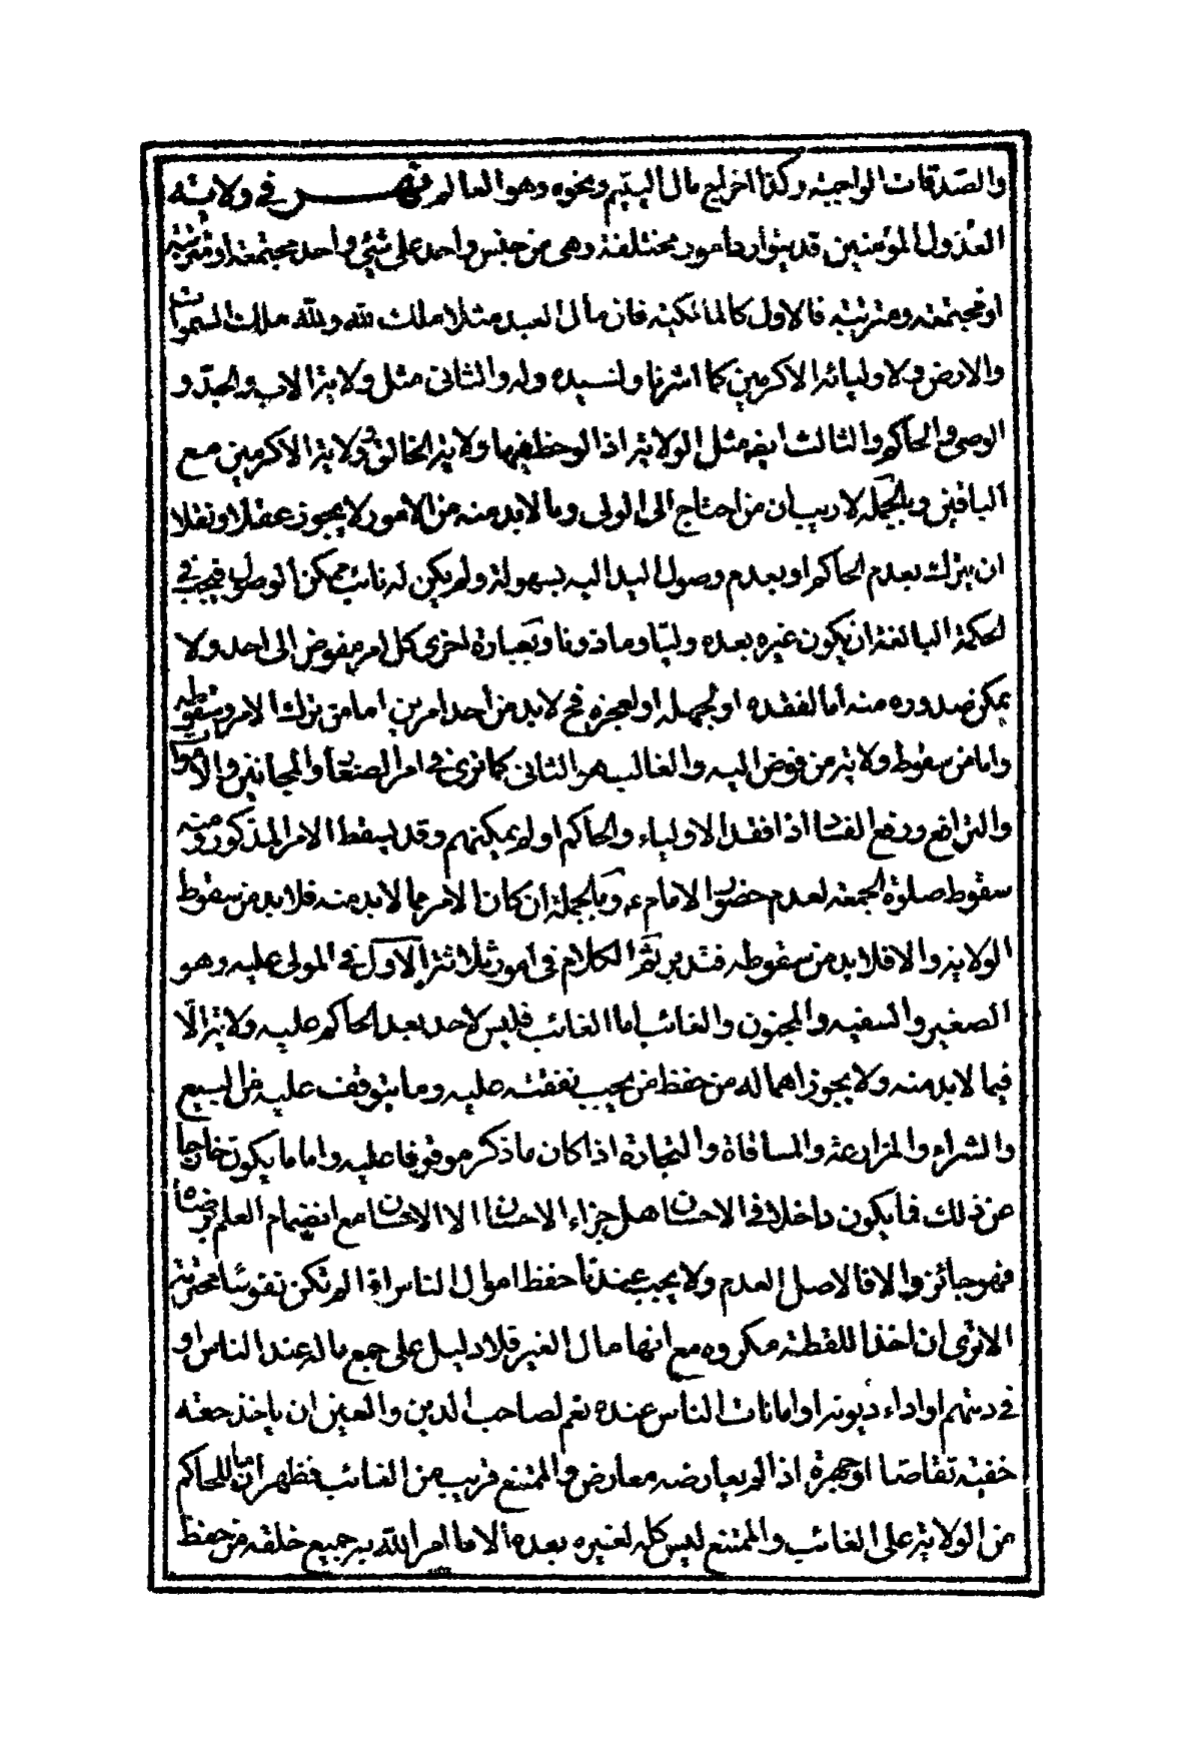 والصدقات الواجبة وكذا اخراج مال اليتيم ونحوه وهو العالم نهر في ولاية
العدول المؤمنين قد يتوارد امور مختلفة وهى من جنس واحد على شئ واحد مجتمعة او مترتبة
او مجتمعة ومترتبة فالاول كالمالكية فان مال العبد مثلا ملك لله ولله ملك السموات
والارض ولاوليائه الاكرمين كما اشرنا ولسيده وله والثانى مثل ولاية الاب والجد و
الوصى والحاكم والثالث ايضه مثل الولاية اذا لوحظ فيها ولاية الخالق وولاية الاكرمين مع
الباقين وبالجملة لا ريب ان من احتاج الى الولى وما لابد منه من الامور لا يجوز عقلا ونقلا
ان يترك بعدم الحاكم او بعدم وصول اليد اليه بسهولة ولم يكن له نائب ممكن الوصول فيجب في
الحكمة البالغة ان يكون غيره بعده وليا وماذونا وبعبارة اخرى كل امر مفوض الى احد ولا
يمكن صدوره منه اما لفقده او لجهله او لعجزه فح لابد من احد امرين اما من ترك الامر وسقوطه
واما من سقوط ولاية من فوض اليه والغالب هو الثانى كما نرى في امر الصغار والمجانين والاموات
والترافع ورفع الفساد اذا فقد الاولياء والحاكم او لم يمكنهم وقد يسقط الامر المذكور ومنه
سقوط صلوة الجمعة لعدم حضور الامام ع وبالجملة ان كان الامر مما لابد منه فلابد من سقوط
الولاية والا فلابد من سقوطه فتدبر ثم الكلام فى امور ثلاثة الاول في المولى عليه وهو
الصغير والسفيه والمجنون والغائب اما الغائب فليس لاحد بعد الحاكم عليه ولاية الا
فيما لابد منه ولا يجوز اهماله من حفظ من يجب نفقته عليه وما يتوقف عليه من البيع
والشراء والمزارعة والمساقاة والتجارة اذا كان ما ذكر موقوفا عليه واما ما يكون خارجا
عن ذلك فما يكون داخلا في الاحسان هل جزاء الاحسان الا الاحسان مع انضمام العلم برضاه
فهو جائز والا فالاصل العدم ولا يجب عندنا حفظ اموال الناس اذا لم تكن نفوسا محترمة
الا ترى ان اخذ اللقطة مكروه مع انها مال الغير فلا دليل على جمع ماله عند الناس او
في ذمتهم او اداء ديونه او امانات الناس عنده نعم لصاحب الدين والعين ان ياخذ حقه
خفية تقاصا او جهرة اذا لم يعارضه معارض والممتنع قريب من الغائب فظهر ان ما للحاكم
من الولاية على الغائب والممتنع ليس كله لغيره بعده الا ما امر الله به جميع خلقه من حفظ